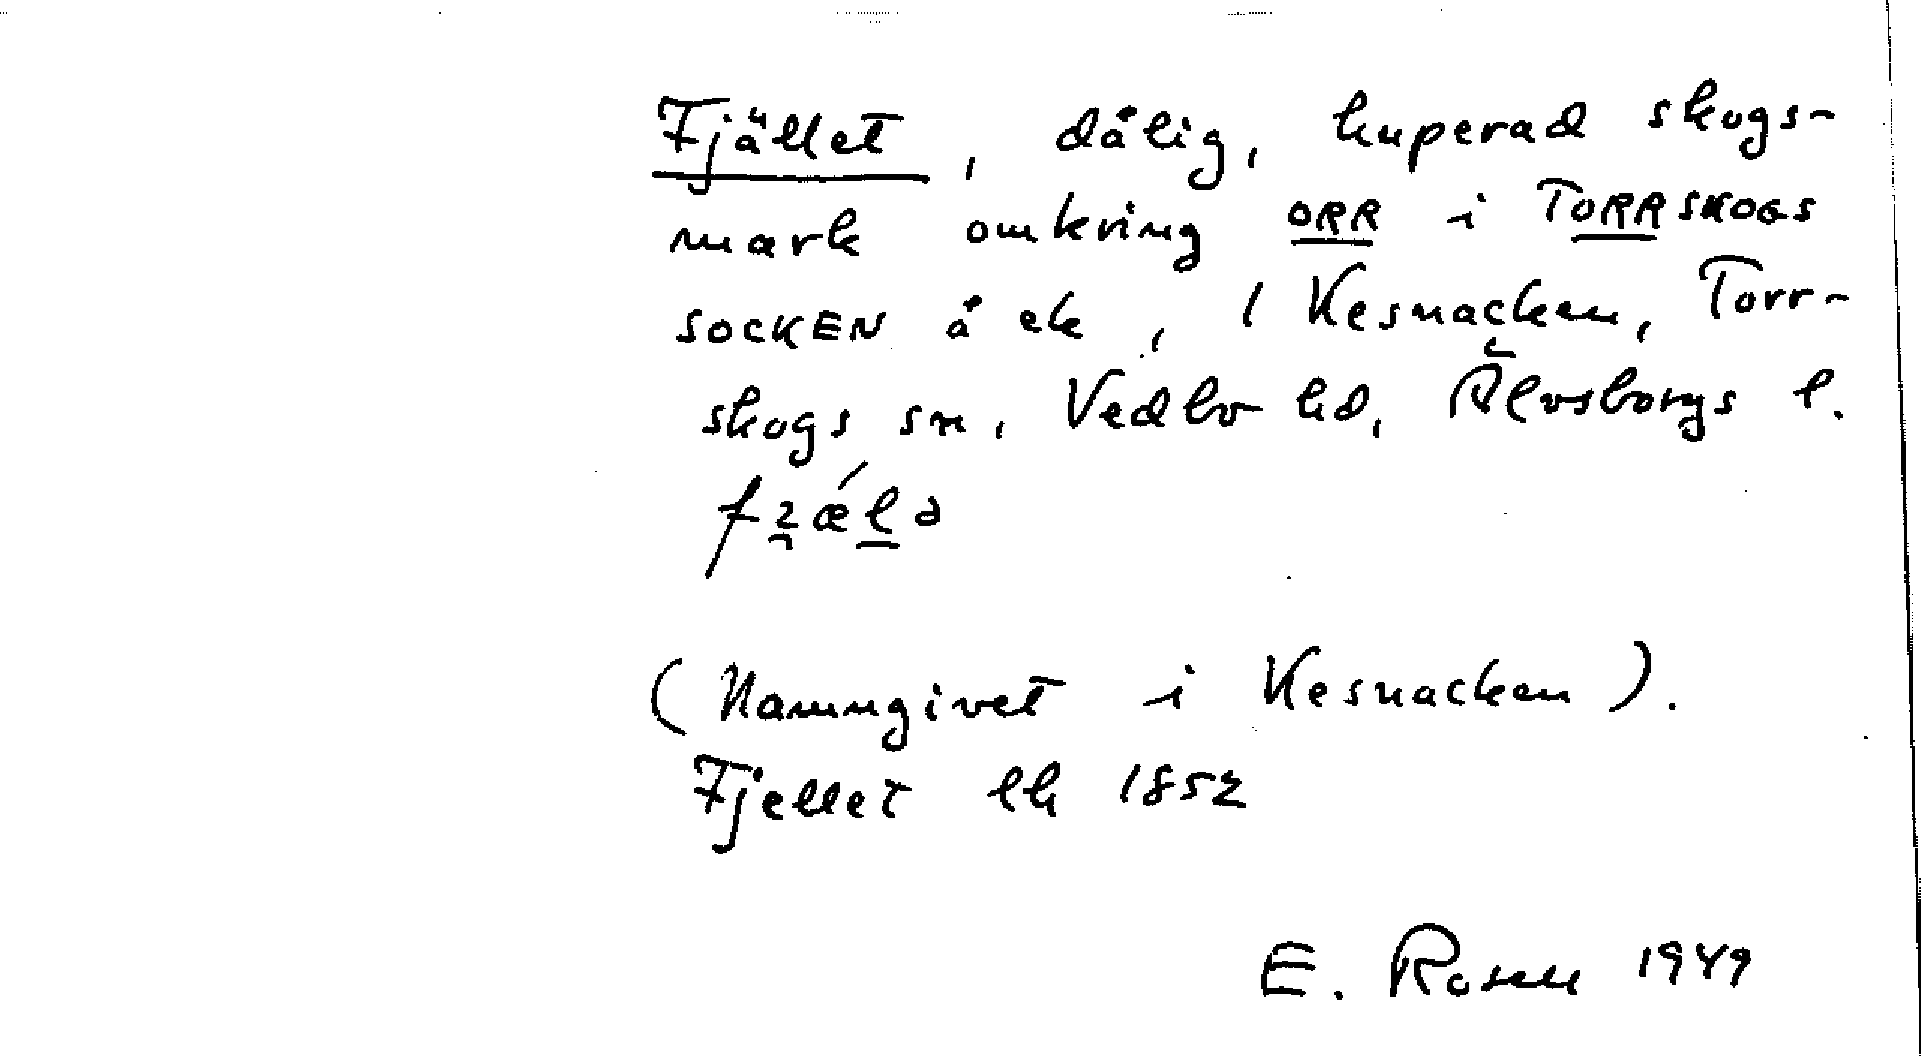 Fjället, dålig, kuperad skogs-
mark omkring ORR i TORRSKOGS
SOCKEN å ek, 1 Kesnacken, Torr-
skogs sn, Vedbo hd, Älvsborgs l.
(Namngivet i Kesnacken).
Fjellet lk 1852
E. Rosell 1949